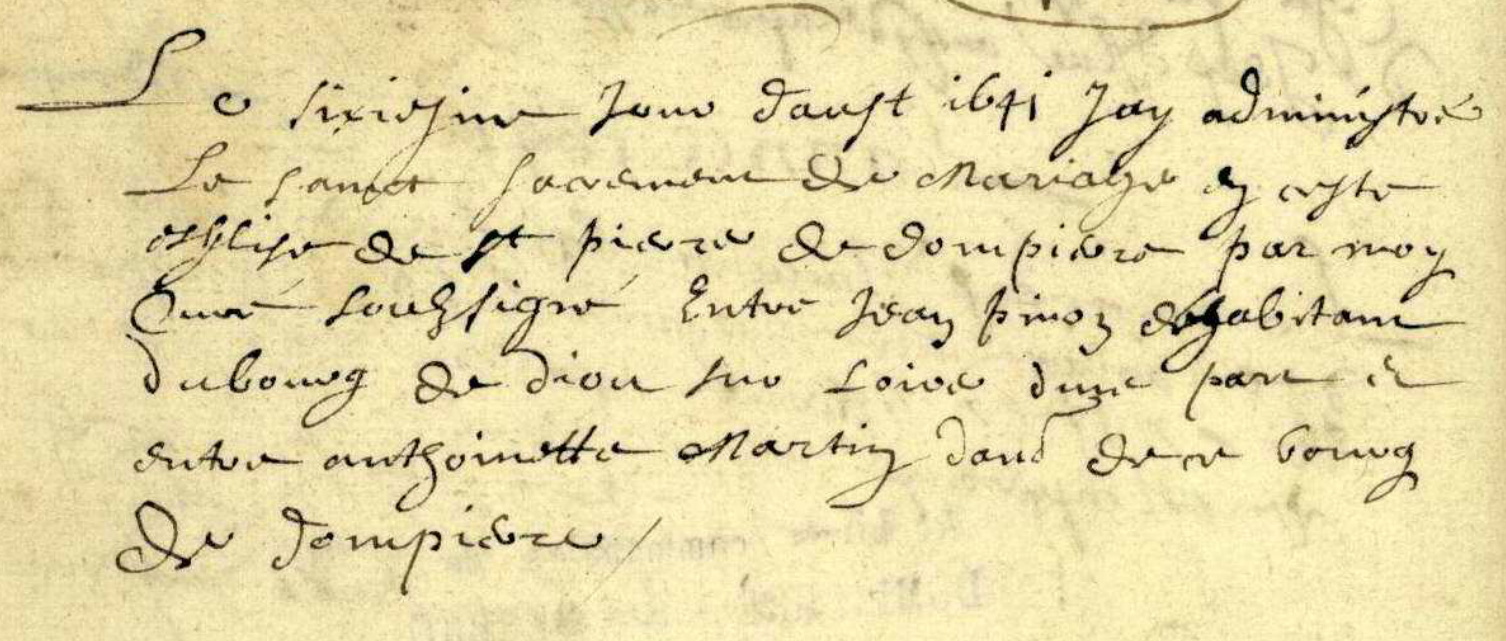 Le sixiesme Jour daust 1641 Jay administré
Le sainct sacrement de Mariage en ceste
esglise de st pierre de dompierre par moy
Curé soubsigné Entre Jean pinon habitant
du bourg de diou sur Loire dune part et
entre anthoinette Martin de ce bourg
de dompierre